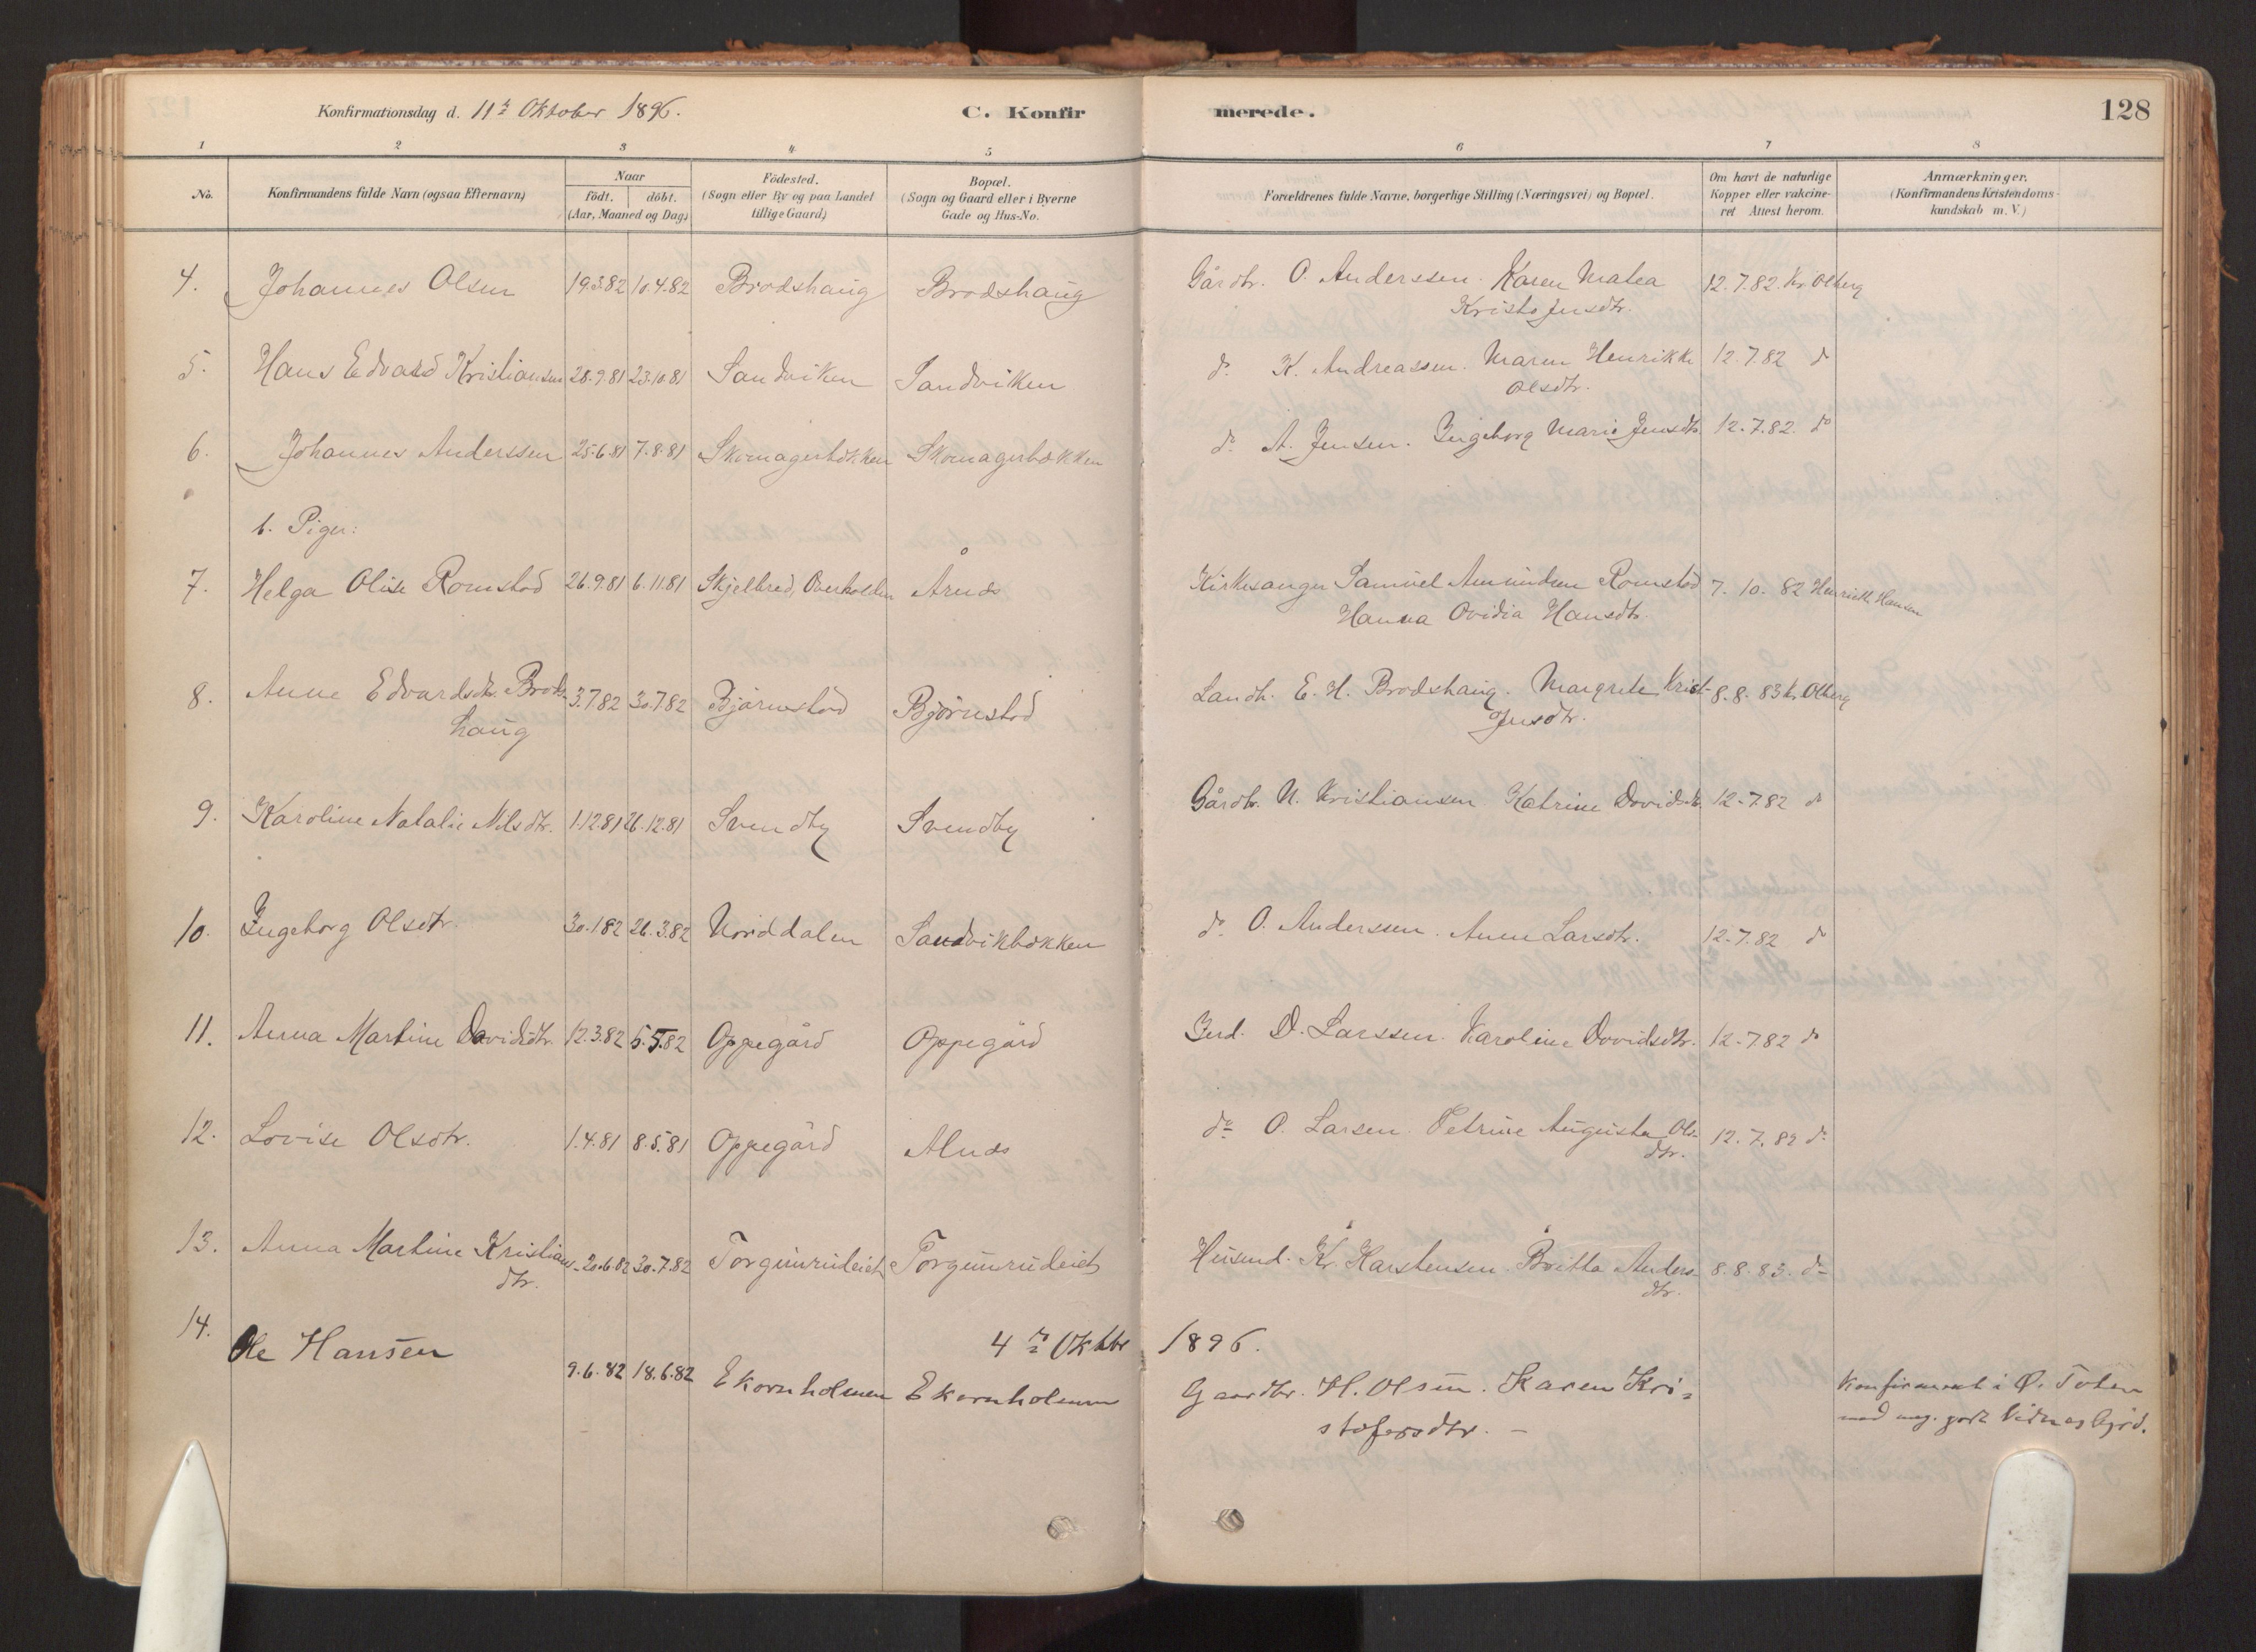 Konfirmationsdag d. 11te Oktober 1896.
C. Konfirmerede.
128
1 2 3 4 5 6 7 8
No.
Konfirmandens fulde Navn (ogsaa Efternavn)
Naar
födt. döbt.
(Aar, Maaned og Dag)
Födested.
(Sogn eller By og paa Landet
tillige Gaard)
Bopæl.
(Sogn og Gaard eller i Byerne
Gade og Hus-No.
Forældrenes fulde Navne, borgerlige Stilling (Næringsvei) og Bopæl.
Om havt de naturlige
Kopper eller vakcine-
ret Attest herom.
Anmærkninger.
(Konfirmandens Kristendoms-
kundskab m. V.)
4. Johannes Olsen 19.3.82 10.4.82 Brodshaug Brodshaug Gårdbr. O. Anderssen. Karen Matea 12.7.82. Kr. Olberg
Kristofersdtr.
5. Hans Edvard Kristiansen 28.9.81 23.10.81 Sandviken Sandviken do K. Andreassen. Maren Henrikke 12.7.82 do
Olsdtr.
6. Johannes Anderssen 25.6.81 7.8.81 Skomagerbækken Skomagerbækken do A. Jensen. Ingeborg Marie Jensdtr. 12.7.82. do
b. Piger:
7. Helga Olise Romstad 26.9.81 6.11.81 Skjelbred, Overhalden Årnæs Kirkesanger Samuel Amundsen Romstad 7.10.82 Henrich Hansen
Hanna Ovidia Hansdtr.
8. Anne Edvardsdtr. Brods- 3.7.82 30.7.82 Björnstad Björnstad Landh. E. H. Brodshaug. Margrete Krist- 8.8.83 Kr. Olberg
haug
Jensdtr.
9. Karoline Natalie Nilsdtr. 1.12.81 26.12.81 Svendby Svendby Gårdbr. N. Kristiansen. Katrine Davidsdtr. 12.7.82 do
10. Ingeborg Olsdtr. 30.1.82 26.3.82 Norddalen Sandvikbækken do O. Anderssen. Anne Larsdtr. 12.7.82 do
11. Anna Martine Davidsdtr. 12.3.82 5.5.82 Oppegård Oppegård Inds. D. Larssen. Karoline Davidsdtr. 12.7.82 do
12. Lovise Olsdtr. 1.4.81 8.5.81 Oppegård Alnæs do O. Larsen. Petrine Augusta Ols- 12.7.82 do
dtr.
13. Anna Martine Kristians- 20.6.82 30.7.82 Torgunrudeiet Torgunrudeiet Husmd. Kr. Karstensen. Britta Anders- 8.8.83. do
dtr. dtr.
4de Oktbr 1896.
14. Ole Hansen 9.6.82 18.6.82 Ekornholmen Ekornholmen Gaardbr. H. Olsen. Karen Kri- Konfirmeret i Ø. Toten
stofersdtr. — med meg. godt Vidnesbyrd.